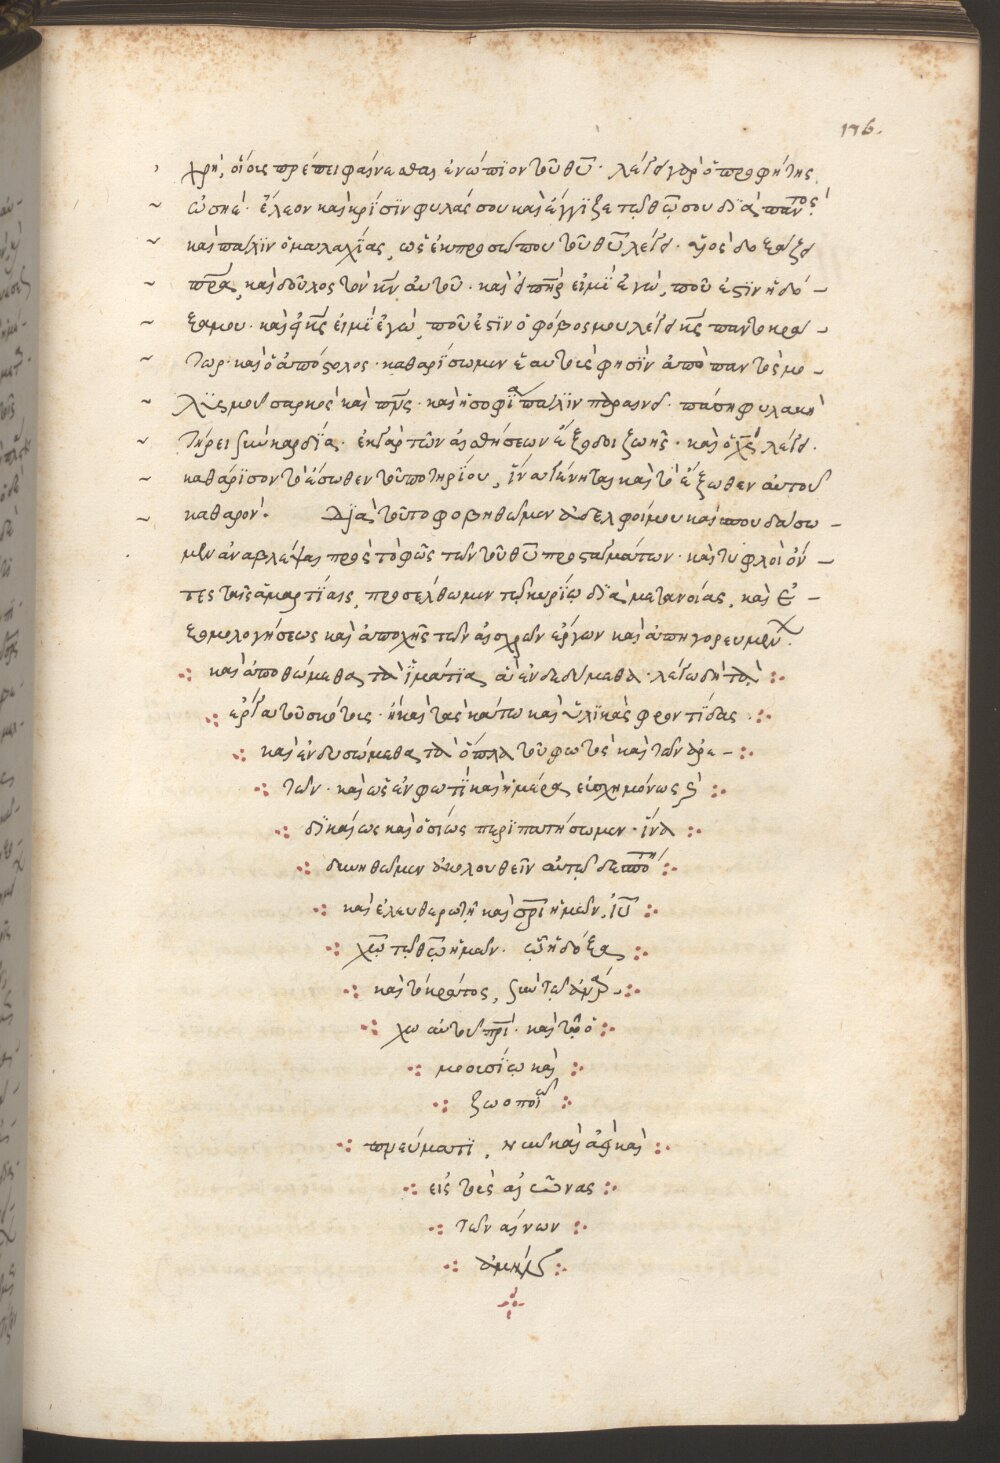 176.
χρὴ, οἵοις πρέπει φαίνεσθαι ἐνώπϊον τοῦ θῦ· λέγει γὰρ ὁ προφήτης
ὡσηέ· ἔλεον καὶ κρίσϊν φυλάσσου καὶ ἔγγιζε τῷ θῷ σου δϊαπαντός·
καὶ παλϊν ὁ μαλαχίας, ὡς ἐκ προσώπου τοῦ θῦ λέγει· υἱὸς δοξάζει
πρα, καὶ δοῦλος τὸν κν αὐτοῦ· καὶ εἰ πηρ εἰμὶ ἐγὼ, ποῦ ἐστὶν ἡ δό -
ξα μου· καὶ εἰ κς εἰμὶ ἐγὼ, ποῦ ἐστὶν ὁ φόβος μου λέγει κς παντοκρά -
τωρ· καὶ ὁ ἀπόστολος· καθαρίσωμεν ἑαυτοὺς φησὶν ἀπὸ παντὸς μο -
λϋσμοῦ σαρκὸς καὶ πνς· καὶ ἡ σοφία παλϊν παραινεῖ· πάσῃ φυλακῇ
τήρει σὴν καρδίαν· ἐκ γὰρ τῶν αἰσθήσεων ἔξοδοι ζωῆς· καὶ ὁ χς λέγει·
καθάρισον τὸ ἔσωθεν τοῦ ποτηρίου, ἵνα γένηται καὶ τὸ ἔξωθεν αὐτοῦ
καθαρόν· Δϊὰ τοῦτο φοβηθῶμεν ἀδελφοί μου καὶ σπουδάσω -
μεν ἀναβλέψαι πρὸς τὸ φῶς τῶν τοῦ θῦ προσταγμάτων· καὶ τυφλοὶ ὄν -
τες ταῖς ἁμαρτίαις, προσέλθωμεν τῷ κυρίῳ δϊὰ μετανοίας, καὶ ἐ -
ξομολογήσεως καὶ ἀποχῆς τῶν αἰσχρῶν ἔργων καὶ ἀπηγορευμένων·
καὶ ἀποθώμεθα τὰ ἱμάτϊα, ἃ ἐνδεδύμεθα· λέγω δὴ τὰ
ἔργα τοῦ σκότους· ἢ καὶ τὰς κάτω καὶ ὑλϊκὰς φροντίδας·
καὶ ἐνδυσώμεθα τὰ ὅπλα τοῦ φωτὸς καὶ τῶν ἀρε -
τῶν· καὶ ὡς ἐν φωτὶ καὶ ἡμέρα, εὐσχημόνως καὶ
δϊκαίως καὶ ὁσίως περϊπατήσωμεν· ἵνα
δυνηθῶμεν ἀκολουθεῖν αὐτῷ δεσπότῃ
καὶ ἐλευθερωτῇ καὶ σρι ἡμῶν, ιυ
χω τῷ θω ἡμῶν· ᾧ ἡ δόξα,
καὶ τὸ κράτος, σὺν τῷ ἀνάρ -
χω αὐτοῦ πρι· καὶ τῷ ὁ
μοουσίῳ καὶ
ζωοποιῷ
πνεύματι, νῦν καὶ ἀεὶ καὶ
εἰς τοὺς αἰῶνας
τῶν αἰώνων
ἀμήν